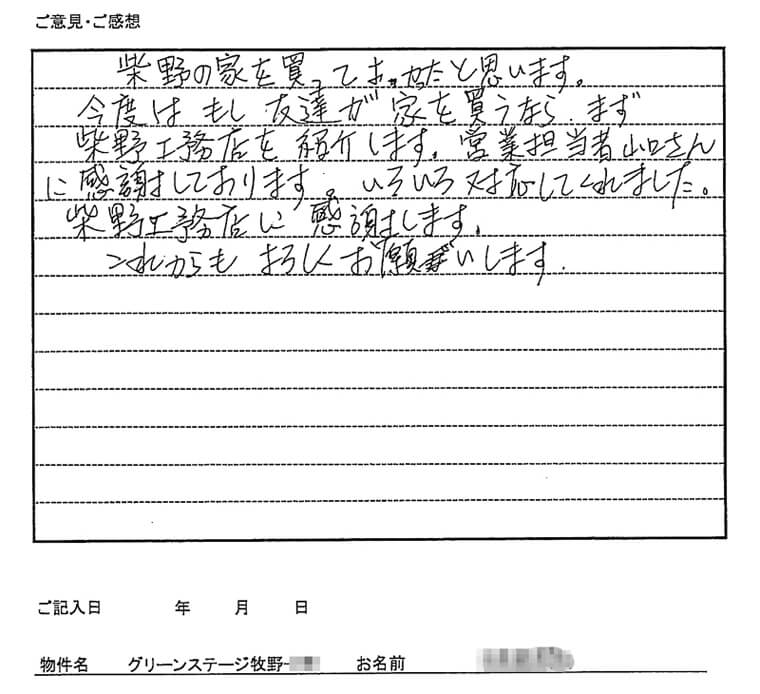 ご意見・ご感想
柴野の家を買ってよかたと思います。
今度は もし 友達が 家を買うなら まず
柴野工務店を 紹介します. 営業担当者山口さん
に感謝しております。 いろいろ対応してくれました。
柴野工務店に 感謝します.
これからも よろしくお願いします.
ご記入日 年 月 日
物件名 グリーンステージ牧野- お名前